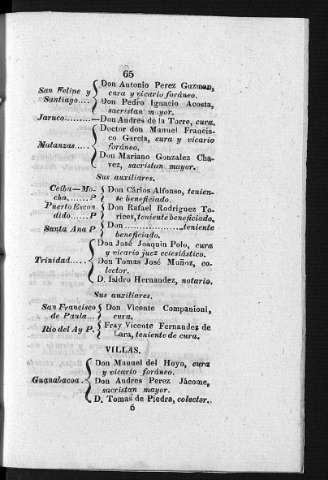 65
Don Antonio Perez Guzman,
San Felipe y cura y vicario foráneo.
Santiago.... Don Pedro Ignacio Acosta,
sacristan mayor.
Jaruco.........—Don Andres de la Torre, cura.
Doctor don Manuel Francis-
co García, cura y vicario
Matanzas..... foráneo.
Don Mariano Gonzalez Cha-
vez, sacristan mayor.
Sus auxiliares.
Ceiba—Mo- Don Cárlos Alfonso, tenien-
cha.....P te beneficiado.
Puerto Escon Don Rafael Rodriguez To-
dido......P ricos, teniente beneficiado,
Santa Ana P Don..................teniente
beneficiado.
Don José Joaquin Polo, cura
y vicario juez eclesiástico.
Trinidad..... Don Tomas José Muñoz, co-
lector.
D. Isidro Hernandez, notario.
Sus auxiliares.
San Francisco Don Vicente Companioni,
de Paula... cura.
Rio del Ay P. Fray Vicente Fernandez de
Lara, teniente de cura.
VILLAS.
Don Manuel del Hoyo, cura
y vicario foráneo.
Guanabacoa. Don Andres Perez Jácome,
sacristan mayor.
D. Tomas de Piedra, colector.
6